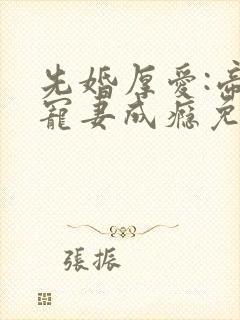 先婚厚愛:帝
寵妻成癮免
張振